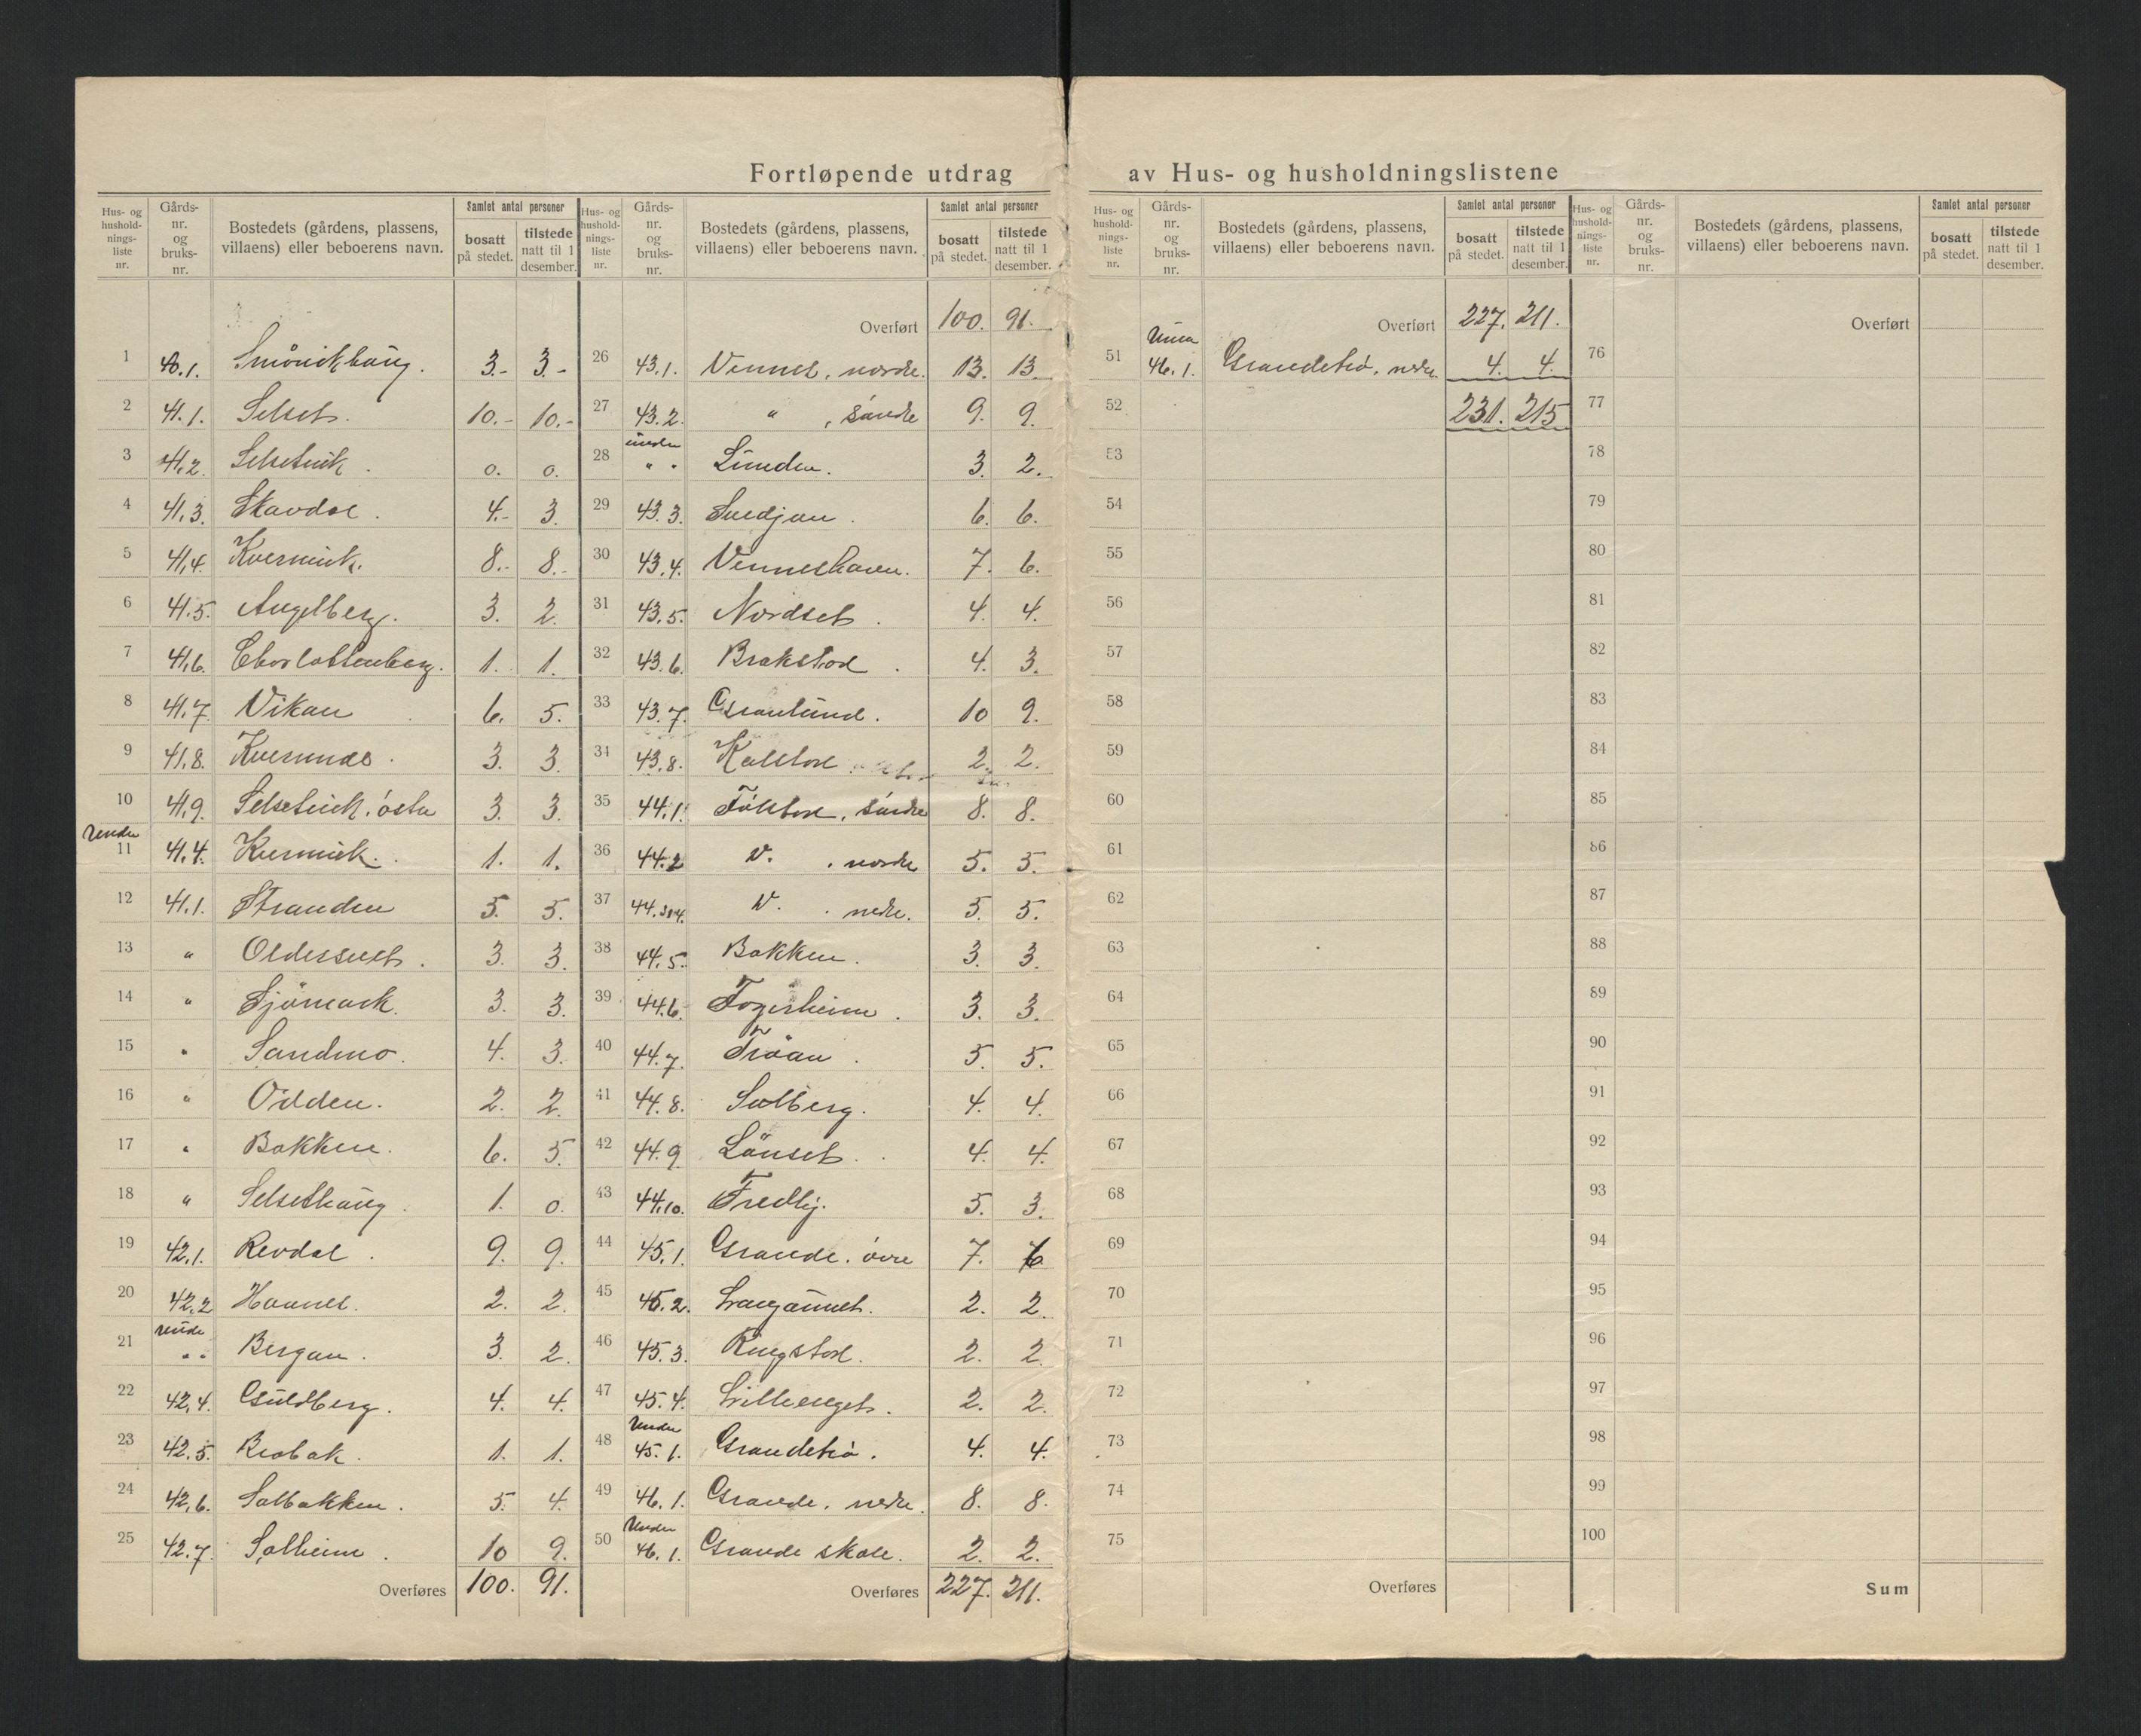 Fortløpende utdrag av Hus- og husholdningslistene
Hus- og hushold-nings-liste nr. Gårds-nr. og bruks-nr. Bostedets (gårdens, plassens, villaens) eller beboerens navn. Samlet antal personer bosatt på stedet. tilstede natt til 1 desember.
1 40.1. 3.- 3.-
2 41.1. Selset. 10.- 10.-
3 41.2. Selsetvik. 0. 0.
4 41.3. Skavdal. 4.- 3.
5 41.4. Kvernvik. 8.- 8.-
6 41.5. Angelberg. 3. 2.
7 41.6. Charlottenberg. 1. 1.
8 41.7. Vikan 6. 5.
9 41.8. 3. 3.
10 41.9. Selsetvik. östre 3. 3.
Under
11 41.4. Kvernvik. 1. 1.
12 41.1. Stranden 5. 5.
13 " 3. 3.
14 " Sjömark. 3. 3.
15 " Sandmo. 4. 3.
16 " Odden. 2. 2.
17 " Bakken. 6. 5.
18 " Selsethaug. 1. 0.
19 42.1. Revdal. 9. 9.
20 42.2 2. 2.
under
21 " " Bergan. 3. 2.
22 42.4. Guldberg. 4. 4.
23 42.5. 1. 1.
24 42.6. Solbakken. 5. 4.
25 42.7. Solheim. 10 9.
Overføres 100. 91.
Hus- og hushold-nings-liste nr. Gårds-nr. og bruks-nr. Bostedets (gårdens, plassens, villaens) eller beboerens navn. Samlet antal personer bosatt på stedet. tilstede natt til 1 desember.
Overført 100. 91.
26 43.1. Vennes, nordre. 13. 13.
27 43.2. " , söndre 9. 9.
under
28 " " Lunden. 3. 2.
29 43.3. Svedjan. 6. 6.
30 43.4. Venneshavn. 7. 6.
31 43.5. Nordset. 4. 4.
32 43.6. Brakstad. 4. 3.
33 43.7. Granlund. 10 9.
34 43.8. 2. 2.
35 44.1. , söndre 8. 8.
36 44.2 . nordre 5. 5.
37 44.3&4. . nedre. 5. 5.
38 44.5. Bakken. 3. 3.
39 44.6. Fagerheim. 3. 3.
40 44.7. Tröan. 5. 5.
41 44.8. Solberg. 4. 4.
42 44.9. Lönset. 4. 4.
43 44.10. Fredly. 5. 3.
44 45.1. Grande. övre 7. 6
45 45.2. 2. 2.
46 45.3. Ringstad. 2. 2.
47 45.4. Lilleenget. 2. 2.
Under
48 45.1. Grandetrö. 4. 4.
49 46.1. Grande, nedre. 8. 8.
Under
50 46.1. Grande skole. 2. 2.
Overføres 227. 211.
Hus- og hushold-nings-liste nr. Gårds-nr. og bruks-nr. Bostedets (gårdens, plassens, villaens) eller beboerens navn. Samlet antal personer bosatt på stedet. tilstede natt til 1 desember.
Overført 227. 211.
Under
51 46.1. Grandetrö, nedre. 4. 4.
52 231. 215
53
54
55
56
57
58
59
60
61
62
63
64
65
66
67
68
69
70
71
72
73
74
75
Overføres
Hus- og hushold-nings-liste nr. Gårds-nr. og bruks-nr. Bostedets (gårdens, plassens, villaens) eller beboerens navn. Samlet antal personer bosatt på stedet. tilstede natt til 1 desember.
Overført
76
77
78
79
80
81
82
83
84
85
86
87
88
89
90
91
92
93
94
95
96
97
98
99
100
Sum